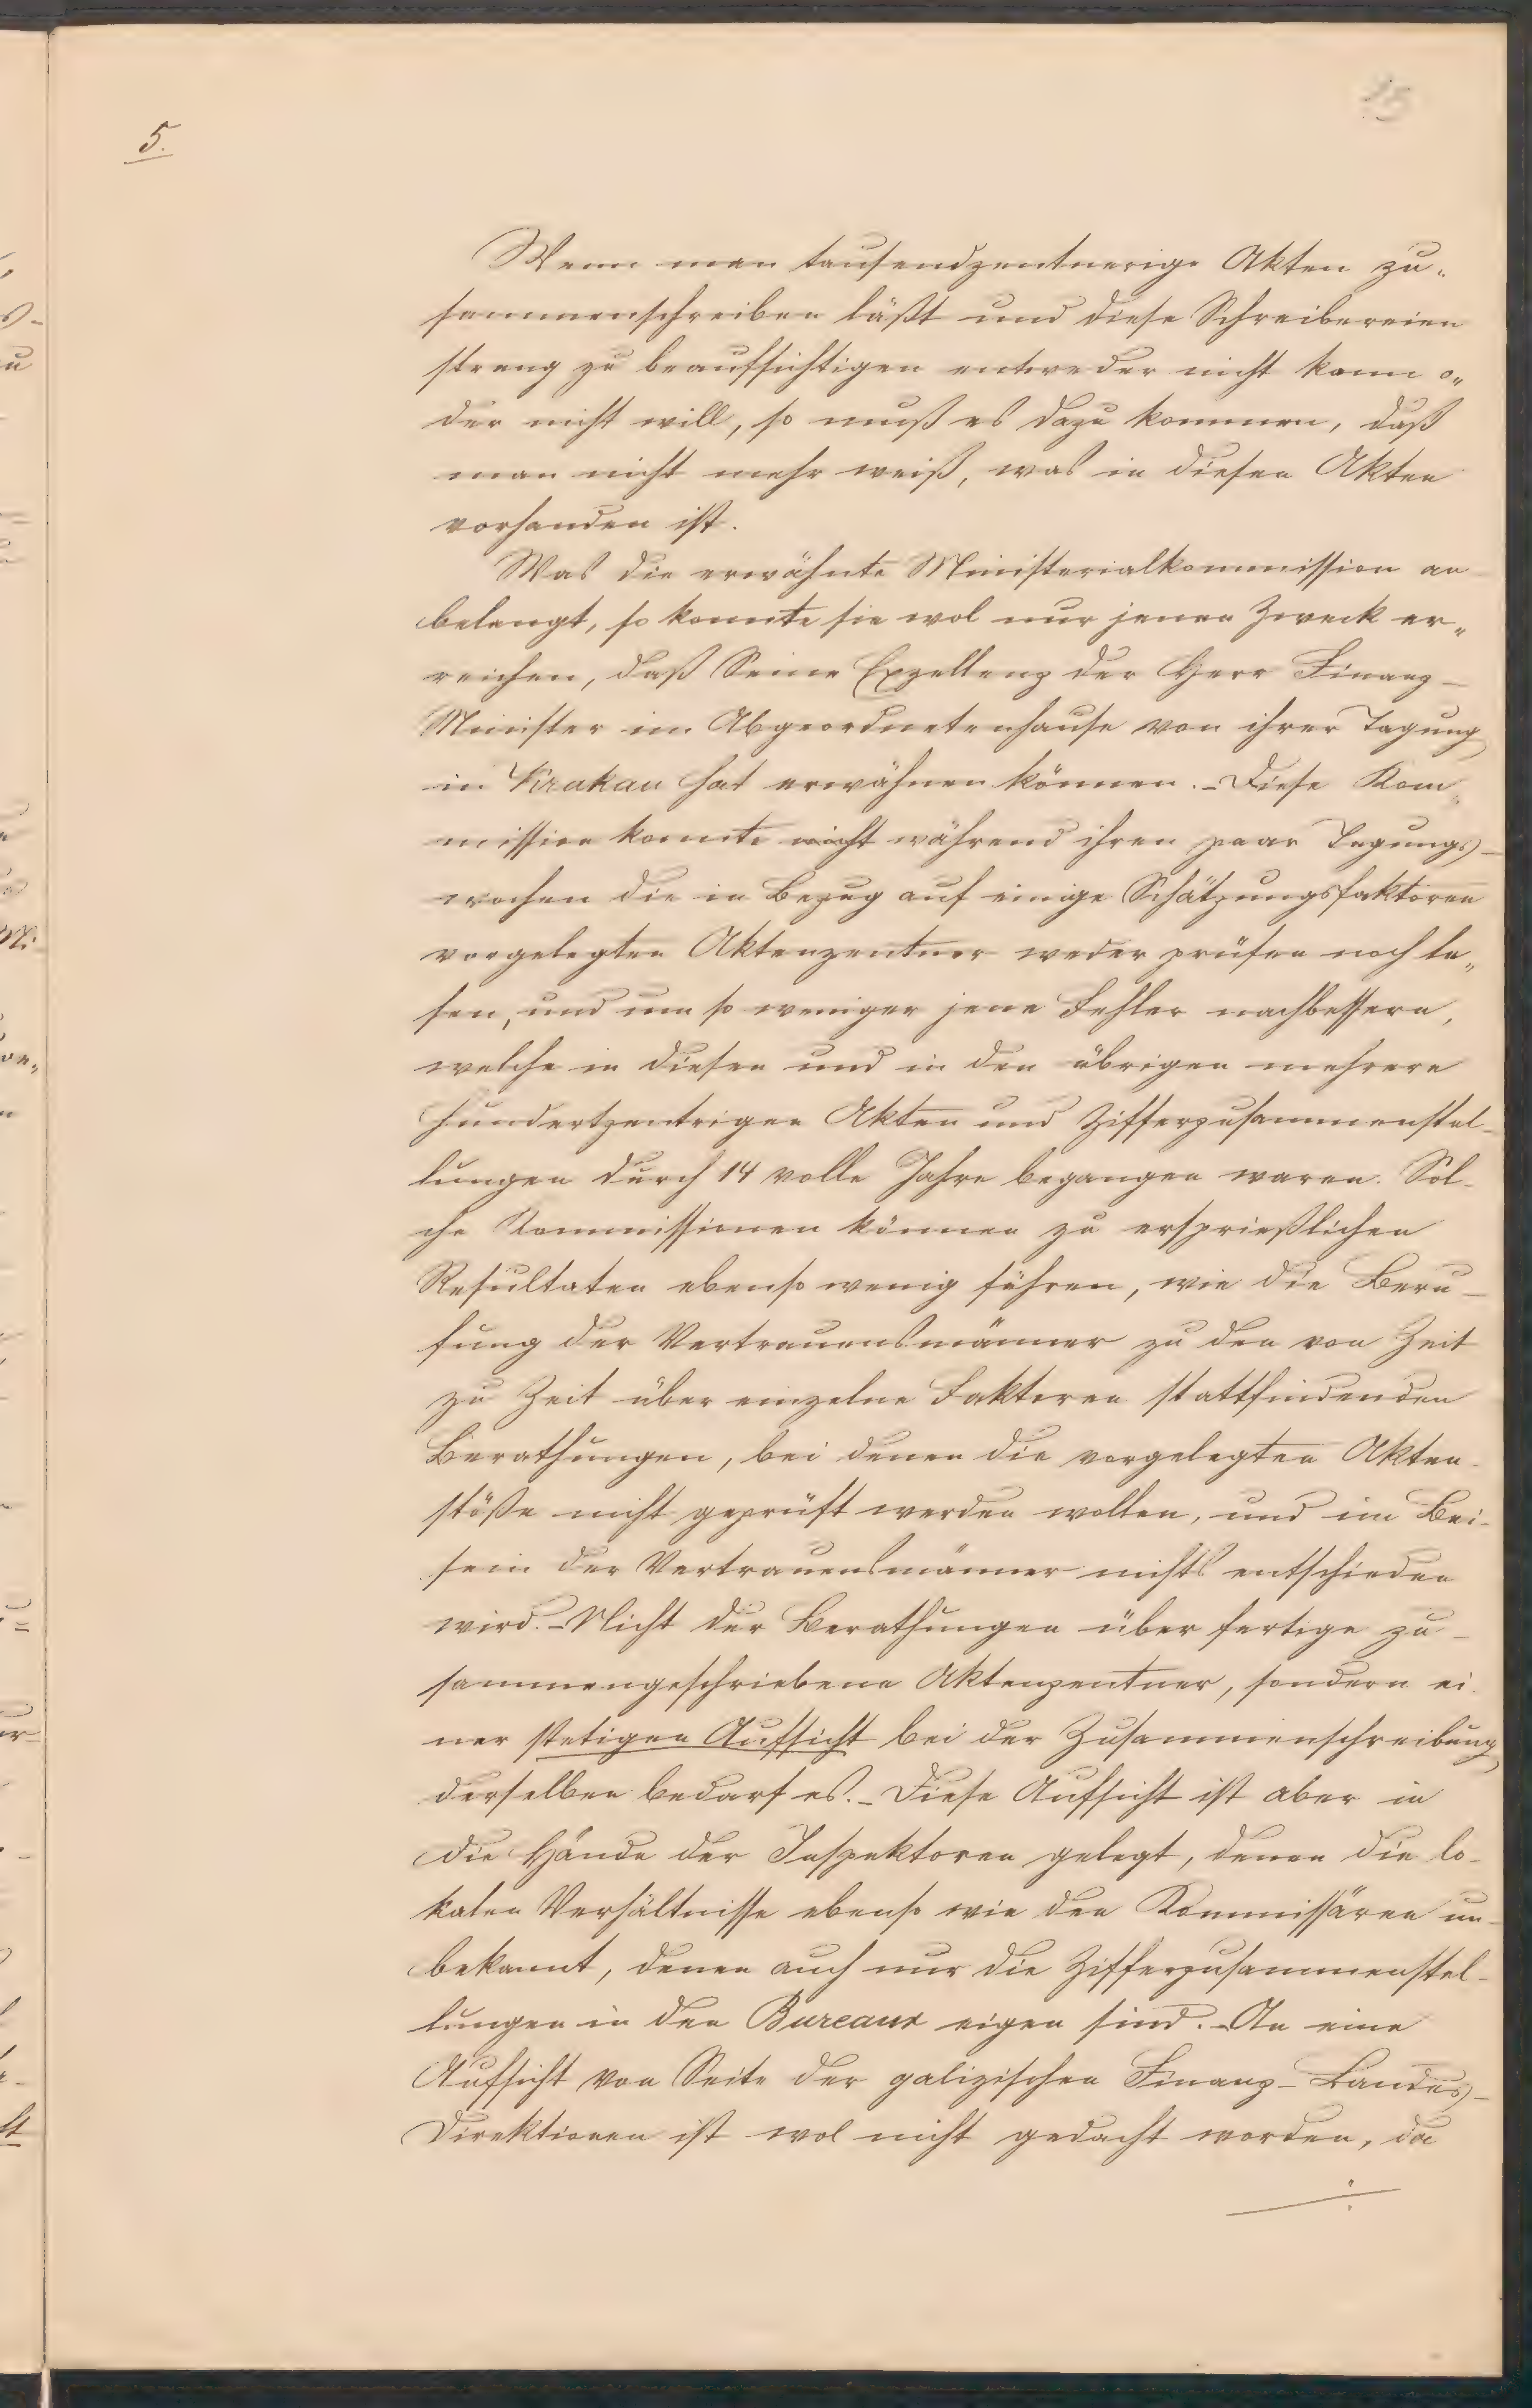 15
5.
Wenn man tausendzentnerige Akten zu„
sammenschreiben läßt und diese Schreibereien
streng zu beaufsichtigen entweder nicht kann o„
der nicht will, so muß es dazu kommen, daß
man nicht mehr weiß, was in diesen Akten
vorhanden ist.
Was die erwähnte Ministerialkommission an
belangt, so konnte sie wol nur jenen Zweck er„
reichen, daß Seine Exzellenz der Herr Finanz-
Minister im Abgeordnetenhause von ihrer Tagung
in Krakau hat erwähnen können. – Diese Kom„
mission konnte nicht während ihren paar Tagungs-
wochen die in Bezug auf einige Schätzungsfaktoren
vorgelegten Aktenzentner weder prüfen noch le„
sen, und um so weniger jene Fehler nachbessern,
welche in diesen und in den übrigen mehrere
hundertzentrigen Akten und Zifferzusammenstel-
lungen durch 14 volle Jahre begangen waren. Sol-
che Kommissionen können zu ersprießlichen
Resultaten ebenso wenig führen, wie die Beru-
fung der Vertrauensmänner zu den von Zeit
zu Zeit über einzelne Faktoren stattfindenden
Berathungen, bei denen die vorgelegten Akten-
stöße nicht geprüft werden wollen, und im Bei-
sein der Vertrauensmänner nichts entschieden
wird. – Nicht der Berathungen über fertige zu-
sammengeschriebene Aktenzentner, sondern ei
ner stetigen Aufsicht bei der Zusammenschreibung
derselben bedarf es. – Diese Aufsicht ist aber in
die Hände der Inspektoren gelegt, denen die lo-
kalen Verhältnisse ebenso wie den Kommissären un-
bekannt, denen auch nur die Zifferzusammenstel-
lungen in den Bureaux eigen sind. – An eine
Aufsicht von Seite der galizischen Finanz-Landes-
Direktionen ist wol nicht gedacht worden, da